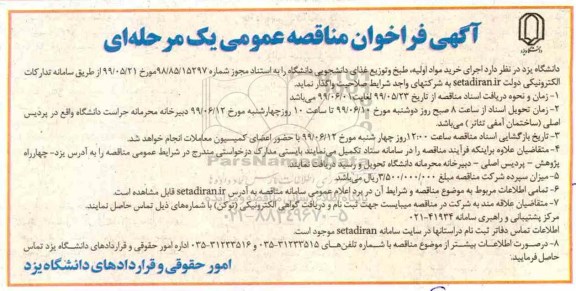 آگهی فراخوان مناقصه عمومی یک مرحله‌ای
دانشگاه یزد
دانشگاه یزد در نظر دارد اجرای خرید مواد اولیه، طبخ وتوزیع غذای دانشجویی دانشگاه را به استناد مجوز شماره ۹۸/۸۵/۱۵۲۹۷مورخ ۹۹/۰۵/۲۱ از طریق سامانه تدارکات
الکترونیکی دولت setadiran.ir به شرکتهای واجد شرایط صلاحیت واگذار نماید.
۱- زمان و نحوه دریافت اسناد مناقصه از تاریخ ۹۹/۰۵/۲۳ لغایت ۹۹/۰۶/۰۱ می‌باشد
۲- زمان تحویل اسناد از ساعت ۸ صبح روز دوشنبه مورخ ۹۹/۰۶/۱۰ تا ساعت ۱۰ روزچهارشنبه مورخ ۹۹/۰۶/۱۲ دبیرخانه محرمانه حراست دانشگاه واقع در پردیس
اصلی (ساختمان آمفی تئاتر) می‌باشد.
۳- تاریخ بازگشایی اسناد مناقصه ساعت ۱۲:۰۰روز چهار شنبه مورخ ۹۹/۰۶/۱۲ با حضور اعضای کمیسیون معاملات انجام خواهد شد.
۴- متقاضیان علاوه براینکه فرآیند مناقصه را در سامانه ستاد تکمیل می‌نمایند بایستی مدارک درخواستی مندرج در شرایط عمومی مناقصه را به آدرس یزد- چهارراه
پژوهش – پردیس اصلی – دبیرخانه محرمانه دانشگاه تحویل و رسید دریافت نمایند.
۵- میزان سپرده شرکت در مناقصه مبلغ ۳/۵۰۰/۰۰۰/۰۰۰ریال می‌باشد.
۶- تمامی اطلاعات مربوط به موضوع مناقصه و شرایط آن در برد اعلام عمومی سامانه مناقصه به آدرس setadiran.ir قابل مشاهده است.
۷- متقاضیان علاقه مند به شرکت در مناقصه میبایست جهت ثبت نام و دریافت گواهی الکترونیکی (توکن) با شماره‌های ذیل تماس حاصل نمایند.
مرکز پشتیبانی و راهبری سامانه ۴۱۹۳۴-۰۲۱
اطلاعات تماس دفاتر ثبت نام دراستانها در سایت سامانه setadiran موجود است.
۸- درصورت اطلاعات بیشتر از موضوع مناقصه با شماره تلفن‌های ۳۱۲۳۳۵۱۵-۰۳۵ و ۳۱۲۳۳۵۱۶-۰۳۵ اداره امور حقوقی و قراردادهای دانشگاه یزد تماس
حاصل فرمایید:
امور حقوقی و قراردادهای دانشگاه یزد
ParsNamadData
۰۲۱-۸۸۳۴۹۶۷۰-۵